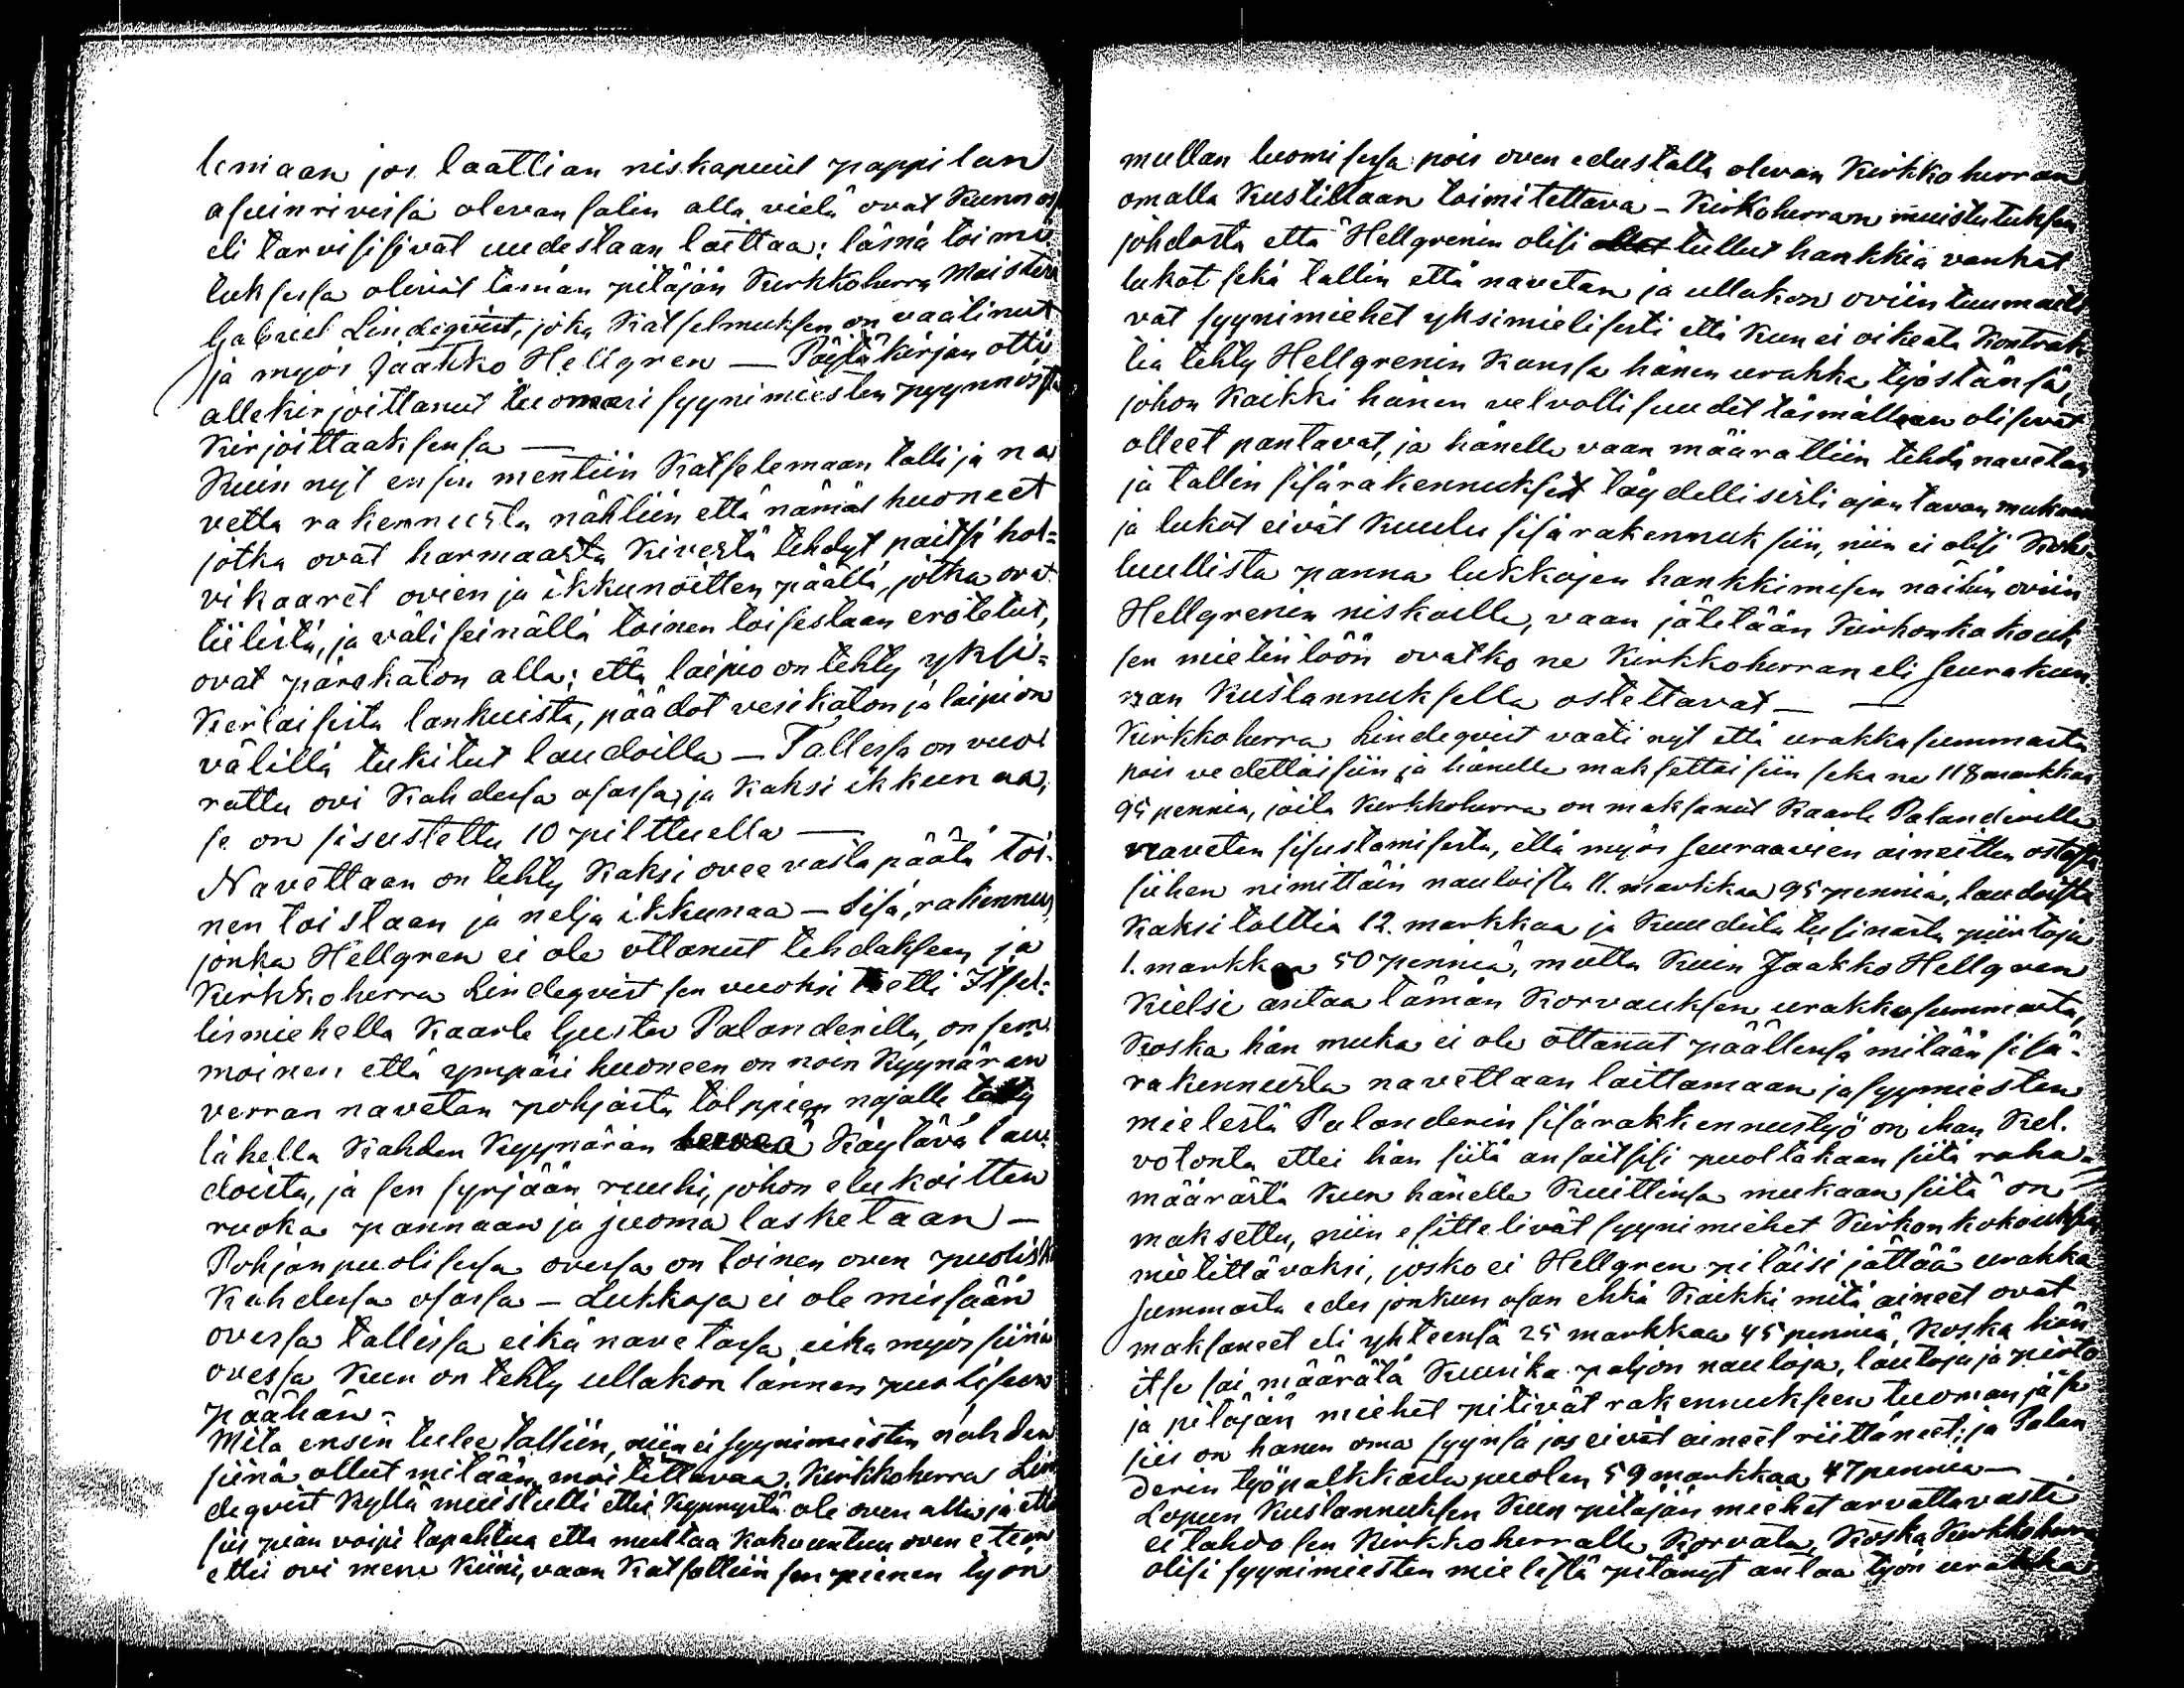 lemaan jos laattian niskapuut pappilan
asuinrivissä olevan salin alla vielä ovat kunnossa
eli tarvisisivat uudestaan laittaa: läsnä toimi
tuksessa olivat tämän pitäjän Kirkkoherra Maisteri
Gabriel Lindeqvist, joka Katselmuksen on vaatinut
ja myös Jaakko Hellgren — Pöytäkirjan otti
allekirjoittanut tuomari syynimiesten pyynnöstä
Kirjoittaaksensa —
Kuin nyt ensin mentiin Katselemaan talli ja na
vetta rakennusta nähtiin että nämät huoneet
jotka ovat harmaasta Kivestä tehdyt paitsi hol=
vikaaret ovien ja ikkunoitten päällä, jotka ovat
tiilistä, ja väliseinällä toinen toisestaan erotetut,
ovat pärekaton alla; että laipio on tehty yksi=
kertaisista lankuista, päädot vesikaton ja laipion
välillä tukitut laudoilla — Tallissa on vuo
rattu ovi Kahdessa osassa, ja Kaksi ikkunaa,
se on sisustettu 10 pilttuella —
Navettaan on tehty Kaksi ovee vastapäätä toi-
nen toistaan ja neljä ikkunaa — Sisä,rakennus,
jonka Hellgren ei ole ottanut tehdäksen ja
Kirkkoherra Lindeqvist sen vuoksi teetti Itsel=
lismiehellä Kaarle Gustav Palanderilla, on sem
moinen että ympäri huoneen on noin Kyynärän
verran navetan pohjasta tolppien nojalle tehty
lähellä Kahden Kyynärän Käytävä lau
doista, ja sen syrjään ruuhi, johon elukoitten
ruoka pannaan ja juoma lasketaan —
Pohjanpuolisessa ovessa on toinen oven puolisko
Kahdessa osassa — Lukkoja ei ole missään
ovessa tallissa eikä navetassa eikä myös siinä
ovessa Kun on tehty ullakon lännen puolisen
päähän –
Mitä ensin tulee talliin, niin ei syynimiesten nähden
siinä ollut mitään moitittavaa, Kirkkoherra Lin
deqvist Kyllä muistutti ettei Kynnystä ole oven alla ja että
siis pian voipi tapahtua että multaa Kokountuu oven eteen
ettei ovi mene Kiini, vaan Katsottiin sen pienen työn
mullan luomisessa pois oven edustalta olevan Kirkkoherran
omalla Kustillaan toimitettava – Kirkoherran muistutuksen
johdosta että Hellgrenin olisi tullut hankkia vankat
lukot sekä tallin että navetan ja ullakon oviin tuumaeli
vat syynimiehet yksimielisesti että kun ei oikeata Kontrak
tia tehty Hellgrenin Kanssa hänen urakka työstänsä,
johon Kaikki hänen velvollisuudet täsmälleen olisivat
olleet pantavat, ja hänelle vaan määrättiin tehdä navetan
ja tallin sisärakennukset täydellisesti ajan tavan mukaan
ja lukot eivät Kuulu sisärakennuksiin, niin ei olisi Koh=
tuullista panna lukkojen hankkimisen näihin oviin
Hellgrenin niskoille, vaan jätetään Kirkonkokouk
sen mietintöön ovatko ne Kirkkoherran eli seurakun
nan Kustannuksella ostettavat — —
Kirkkoherra Lindeqvist vaati nyt että urakkasummasta
pois vedettäisiin ja hänelle maksettaisiin seka ne 118 markkaa
95 penniä, joita Kirkkoherra on maksanut Kaarle Palanderille
navetan sisustamisesta, että myös seuraavien aineitten ostosta
siihen nimittäin nauloista 11. markkaa 95 penniä, laudoista
Kaksi tolttia 12. markkaa ja Kuudesta tusinasta piirtoja
1. markkaa 50 penniä, mutta Kuin Jaakko Hellgren
Kielsi antaa tämän Korvauksen urakkasummasta,
Koska hän muka ei ole ottanut päällensä mitään sisä-
rakennusta navettaan laittamaan ja syynmiesten
mielestä Palanderin sisärakkennustyö on ihan Kel.
votonta ettei hän siitä ansaitsisi puoltakaan siitä raha-
määrästä Kun hänelle Kuittinsa mukaan siitä on
maksettu, niin esittelivät syynimiehet Kirkonkokouksen
mietittäväksi, josko ei Hellgren pitäisi jättää urakka
summasta edes jonkun osan ehkä Kaikki mitä aineet ovat
maksaneet eli yhteensä 25 markkaa 45 penniä, Koska hän
itse sai määrätä Kuinka paljon nauloja, lautoja ja pirto
ja pitäjän miehet pitivät rakennukseen tuoman ja se
siis on hänen oma syynsä jos eivät aineet riittäneet; ja Palan
derin työpalkkasta puolen 59 markkaa 47 penniä —
Lopun Kustannuksen Kun pitäjän miehet arvattavasti
ei tahdo sen Kirkkoherralle Korvata, Koska Kirkkoherra
olisi syynimiesten mielestä pitänyt antaa työn urakka